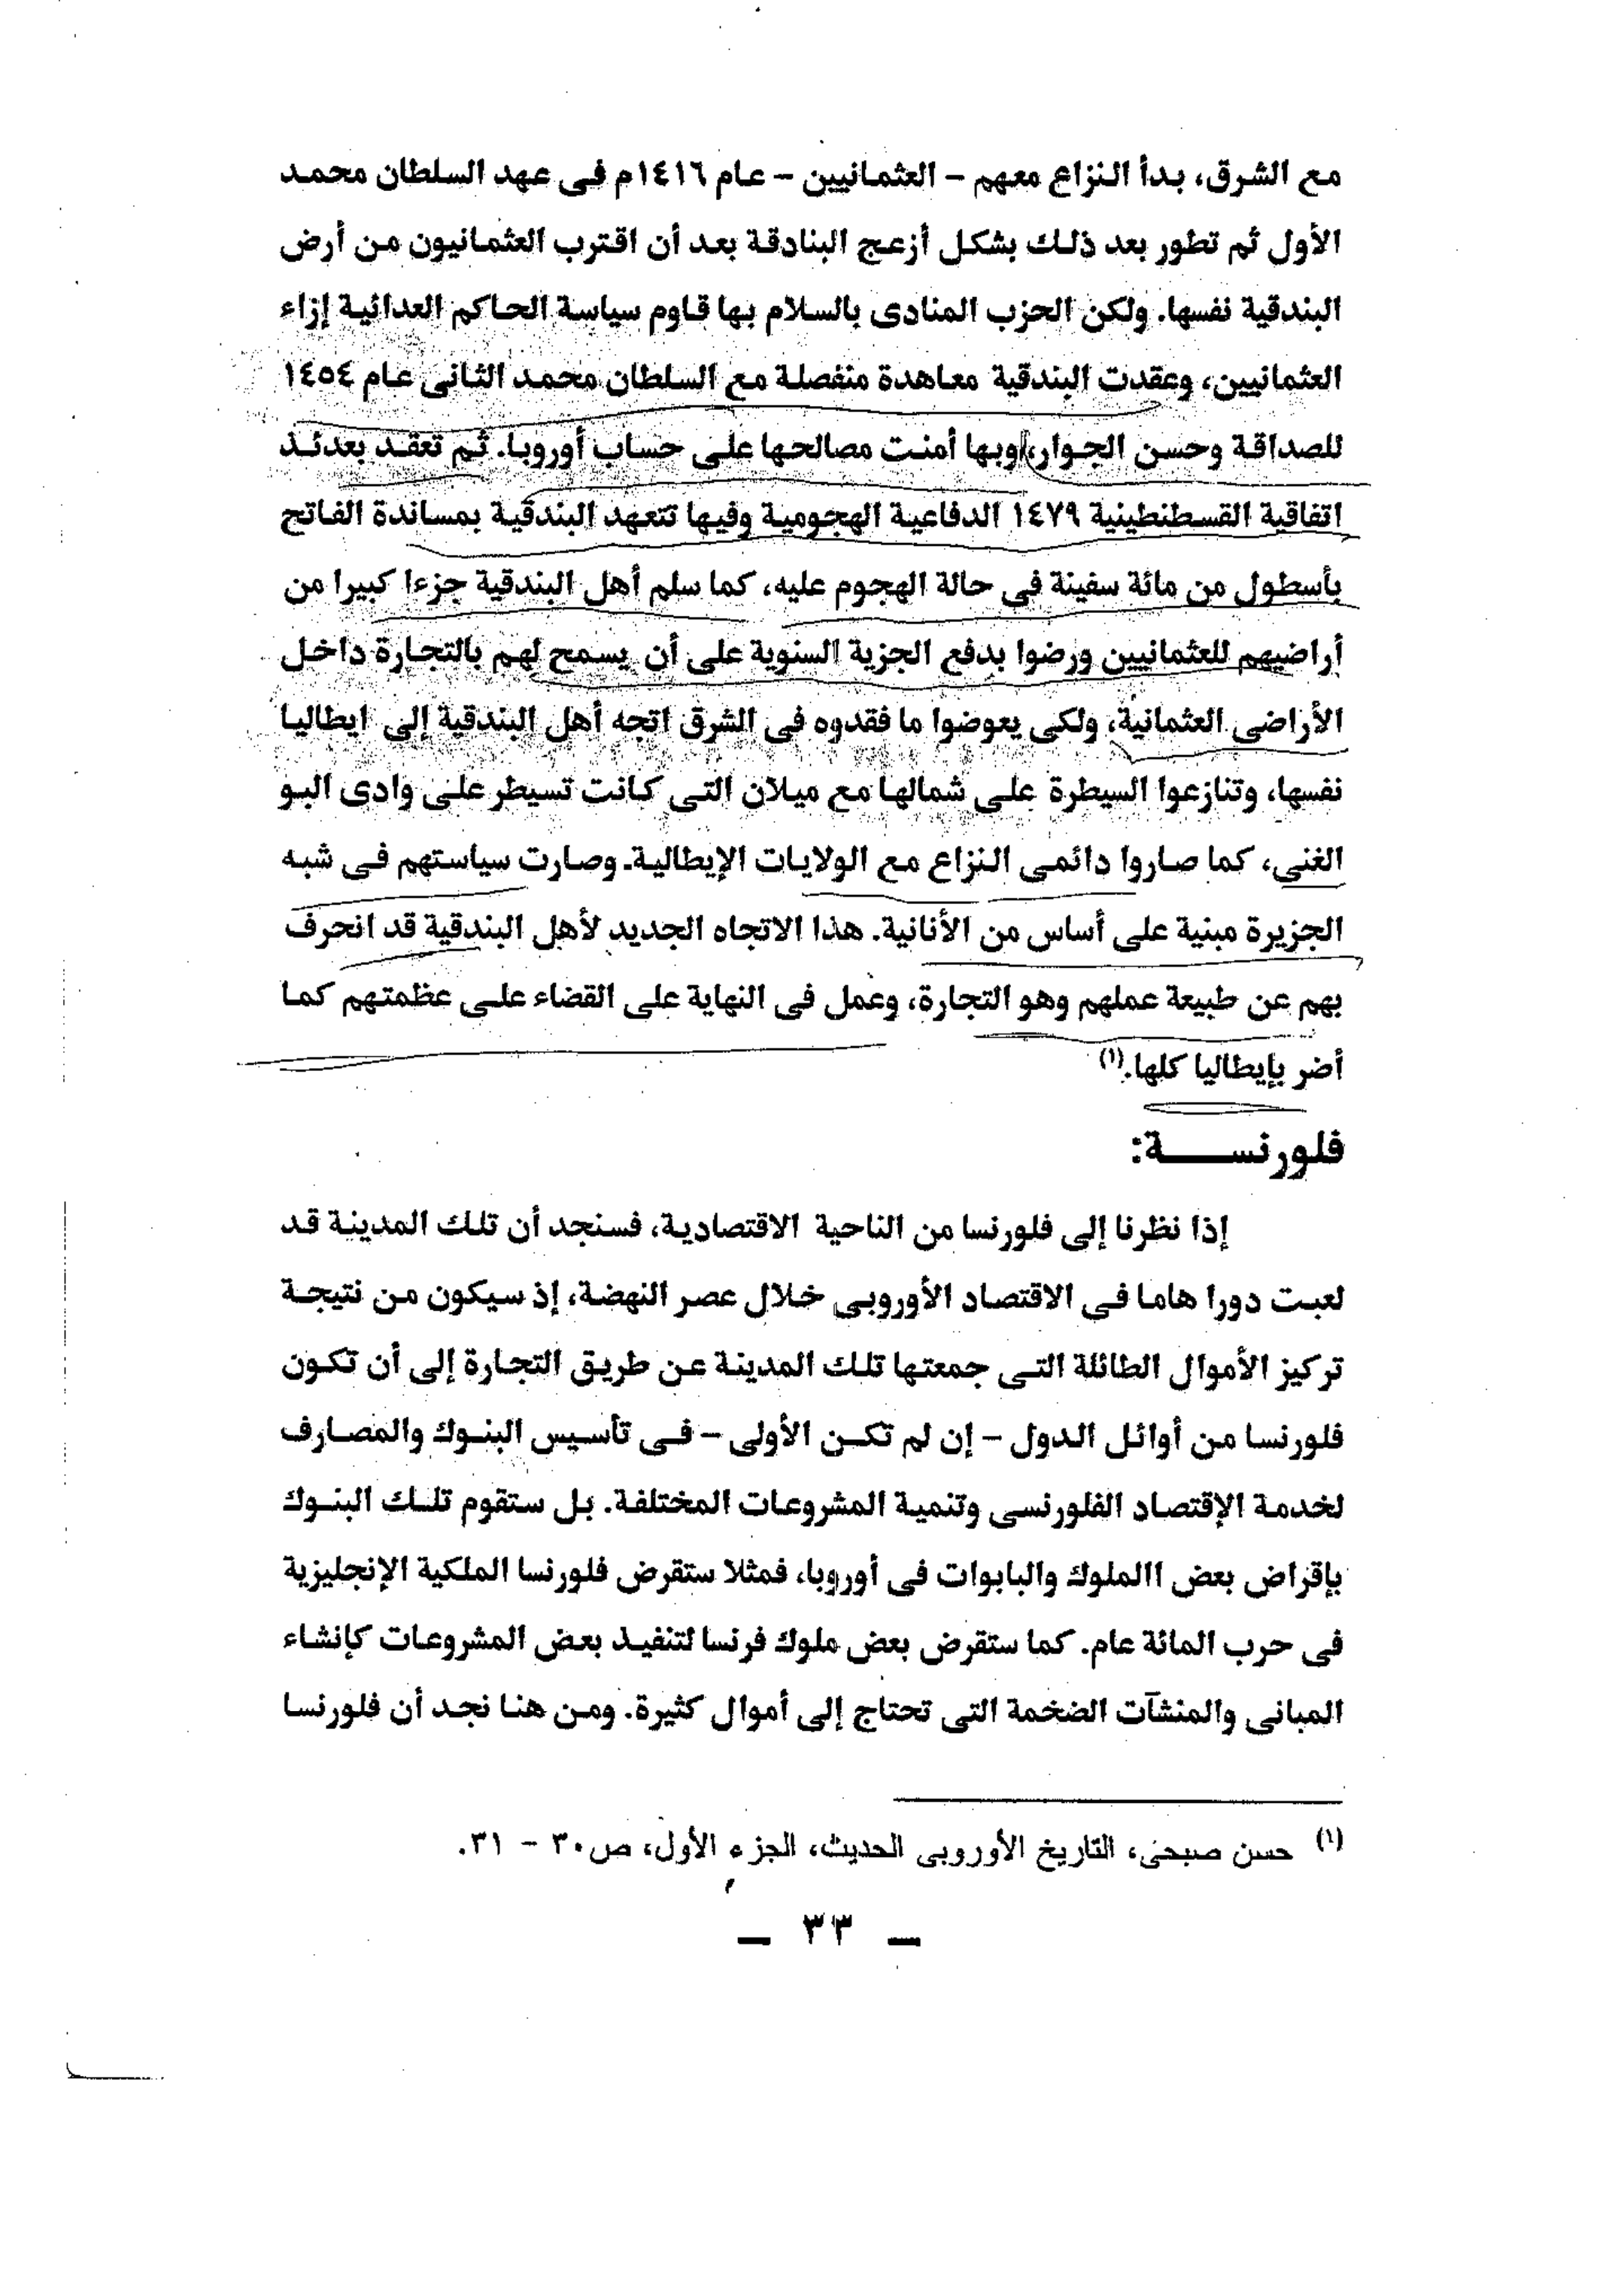 مع الشرق، بدأ النزاع معهم – العثمانيين – عام ١٤١٦م فى عهد السلطان محمد
الأول ثم تطور بعد ذلك بشكل أزعج البنادقة بعد أن اقترب العثمانيون من أرض
البندقية نفسها. ولكن الحزب المنادى بالسلام بها قاوم سياسة الحاكم العدائية إزاء
العثمانيين، وعقدت البندقية معاهدة منفصلة مع السلطان محمد الثانى عام ١٤٥٤
للصداقة وحسن الجوار، وبها أمنت مصالحها على حساب أوروبا. ثم تعقد بعدئذ
اتفاقية القسطنطينية ١٤٧٩ الدفاعية الهجومية وفيها تتعهد البندقية بمساندة الفاتح
بأسطول من مائة سفينة فى حالة الهجوم عليه، كما سلم أهل البندقية جزءا كبيرا من
أراضيهم للعثمانيين ورضوا بدفع الجزية السنوية على أن يسمح لهم بالتجارة داخل
الأراضى العثمانية، ولكى يعوضوا ما فقدوه فى الشرق اتجه أهل البندقية إلى ايطاليا
نفسها، وتنازعوا السيطرة على شمالها مع ميلان التى كانت تسيطر على وادى البو
الغنى، كما صاروا دائمى النزاع مع الولايات الإيطالية. وصارت سياستهم فى شبه
الجزيرة مبنية على أساس من الأنانية. هذا الاتجاه الجديد لأهل البندقية قد انحرف
بهم عن طبيعة عملهم وهو التجارة، وعمل فى النهاية على القضاء على عظمتهم كما
أضر بإيطاليا كلها.(١)
فلورنســـــة:
إذا نظرنا إلى فلورنسا من الناحية الاقتصادية، فسنجد أن تلك المدينة قد
لعبت دورا هاما فى الاقتصاد الأوروبى خلال عصر النهضة، إذ سيكون من نتيجة
تركيز الأموال الطائلة التى جمعتها تلك المدينة عن طريق التجارة إلى أن تكون
فلورنسا من أوائل الدول – إن لم تكن الأولى – فى تأسيس البنوك والمصارف
لخدمة الإقتصاد الفلورنسى وتنمية المشروعات المختلفة. بل ستقوم تلك البنوك
بإقراض بعض االملوك والبابوات فى أوروبا، فمثلا ستقرض فلورنسا الملكية الإنجليزية
فى حرب المائة عام. كما ستقرض بعض ملوك فرنسا لتنفيذ بعض المشروعات كإنشاء
المبانى والمنشآت الضخمة التى تحتاج إلى أموال كثيرة. ومن هنا نجد أن فلورنسا
(١) حسن صبحى، التاريخ الأوروبى الحديث، الجزء الأول، ص٣٠ – ٣١.
– ٣٣ –